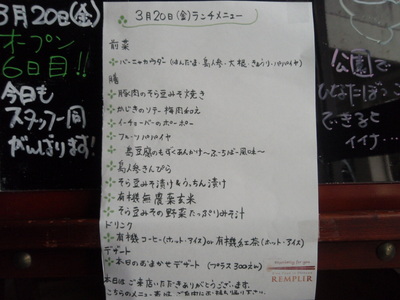 3月20日(金)
オープン
6日目!!
今日も
スタッフ一同
がんばります!
3月20日(金)ランチメニュー
前菜
バーニャカウダー(はんだま・島人参・大根・きゅうり・パパイヤ)
膳
豚肉のそら豆みそ焼き
かじきのソテー梅肉和え
イーチョーバーのポーポー
フルーツパパイヤ
島豆腐のもずくあんかけ〜ふーちばー風味〜
島人参きんぴら
そら豆みそ漬け&うっちん漬け
有機無農薬玄米
そら豆みその野菜たっぷりみそ汁
ドリンク
有機コーヒー(ホット・アイス)or有機紅茶(ホット・アイス)
デザート
本日のおまかせデザート(プラス300えん)
本日はご来店いただきありがとうございます。
こちらのメニュー表は
REMPLIR
公園で
ひなたぼっこ
できると
イイナ…